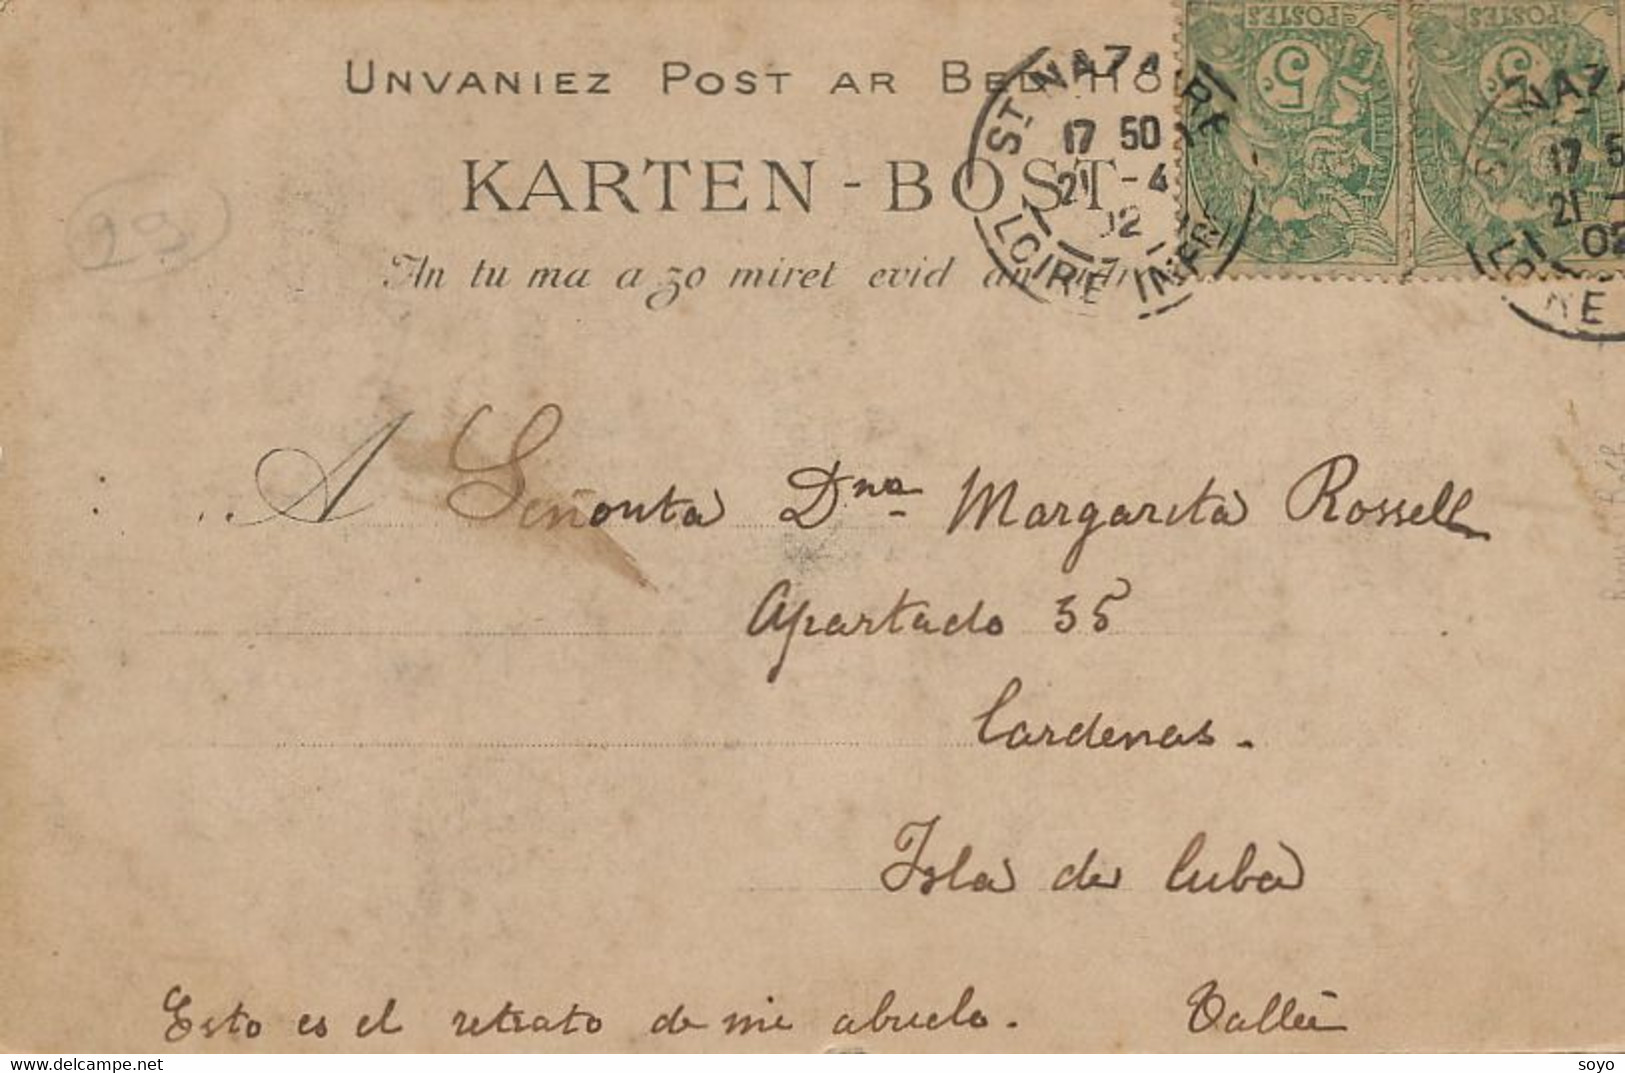 UNVANIEZ POST AR BED HO
KARTEN-BOST
An tu ma a zo miret evid an
POSTES
POSTES
5c
5c
ST NAZAIRE
17 50
21 -4
02
LOIRE INFRE
17 5
21
02
29
A Señorita Dna Margarita Rossell
Apartado 35
Cardenas.
Isla de Cuba
Esto es el retrato de mi abuelo. Vallée
www.delcampe.net
soyo